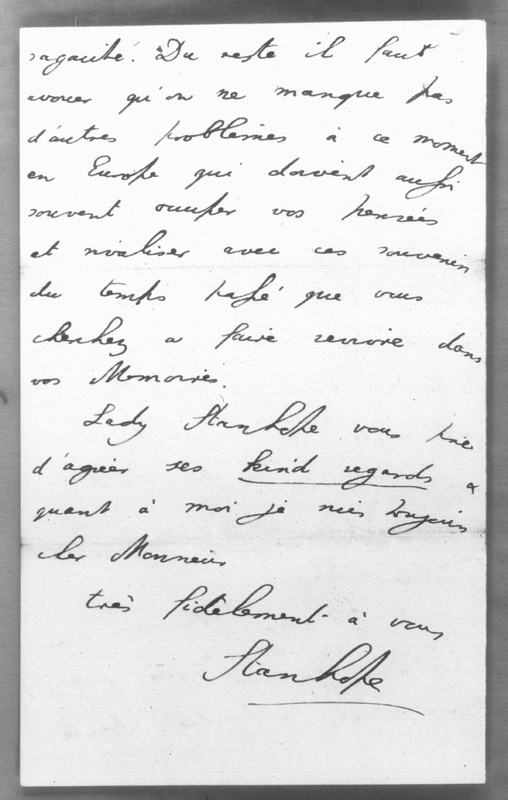 sagacité. Du reste il faut
avouer qu'on ne manque pas
d'autres problèmes à ce moment
en Europe qui doivent aussi
souvent occuper vos pensées
et rivaliser avec ces souvenirs
du temps passé que vous
cherchez a faire revivre dans
vos Memoires.
Lady Stanhope vous prie
d'agréer ses kind regards &
quant à moi je suis toujours
cher Monsieur
très fidèlement à vous
Stanhope